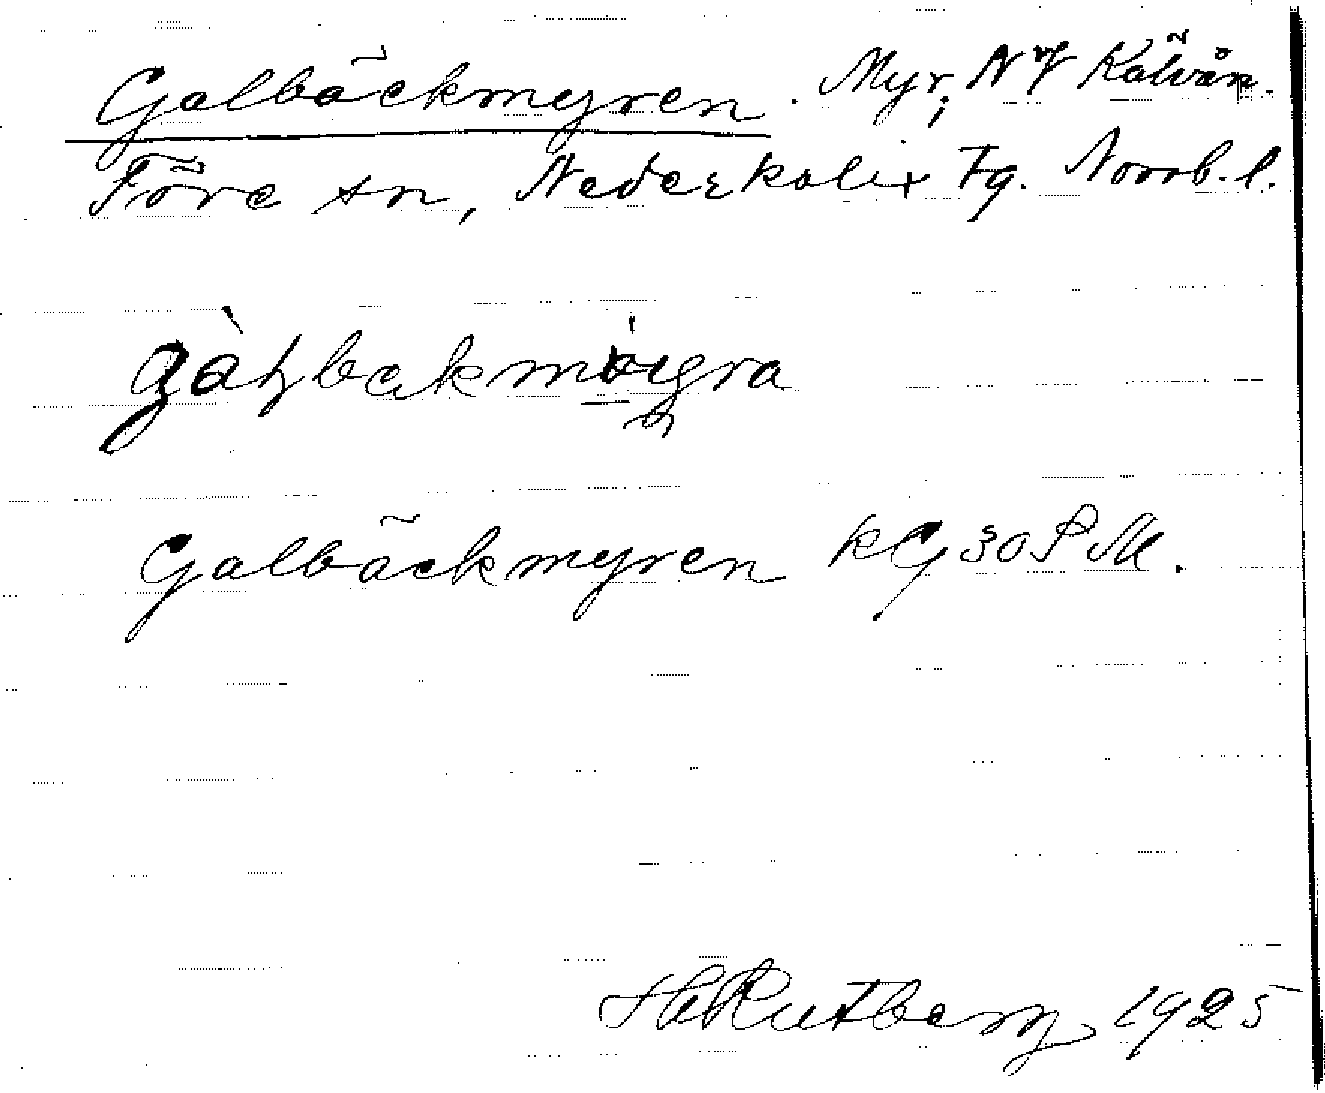 Galbäckmyren. Myr, NV Kälvån.
Töre sn, Nederkalix Tg. Norrb. l.
Galbäckmyren KG 30 S M.
H Rutberg 1925